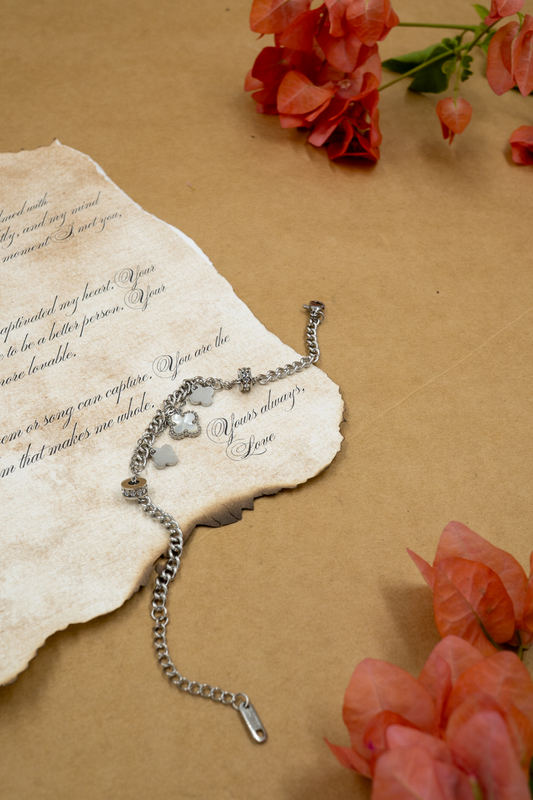 and my mind
moment I met you,
captivated my heart. Your
to be a better person. Your
more lovable.
or song can capture. You are the
that makes me whole.
Yours always,
Love